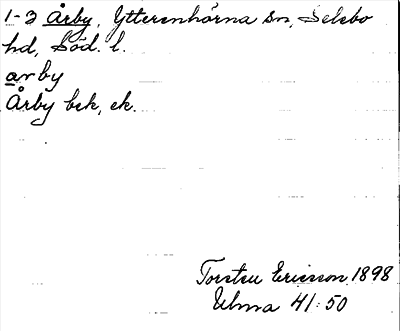 1-3 Årby, Ytterenhörna sn, Selebo
hd, Söd. l.
arby
Årby bek, ek.
Torsten Ericsson 1898
Ulma 41:50